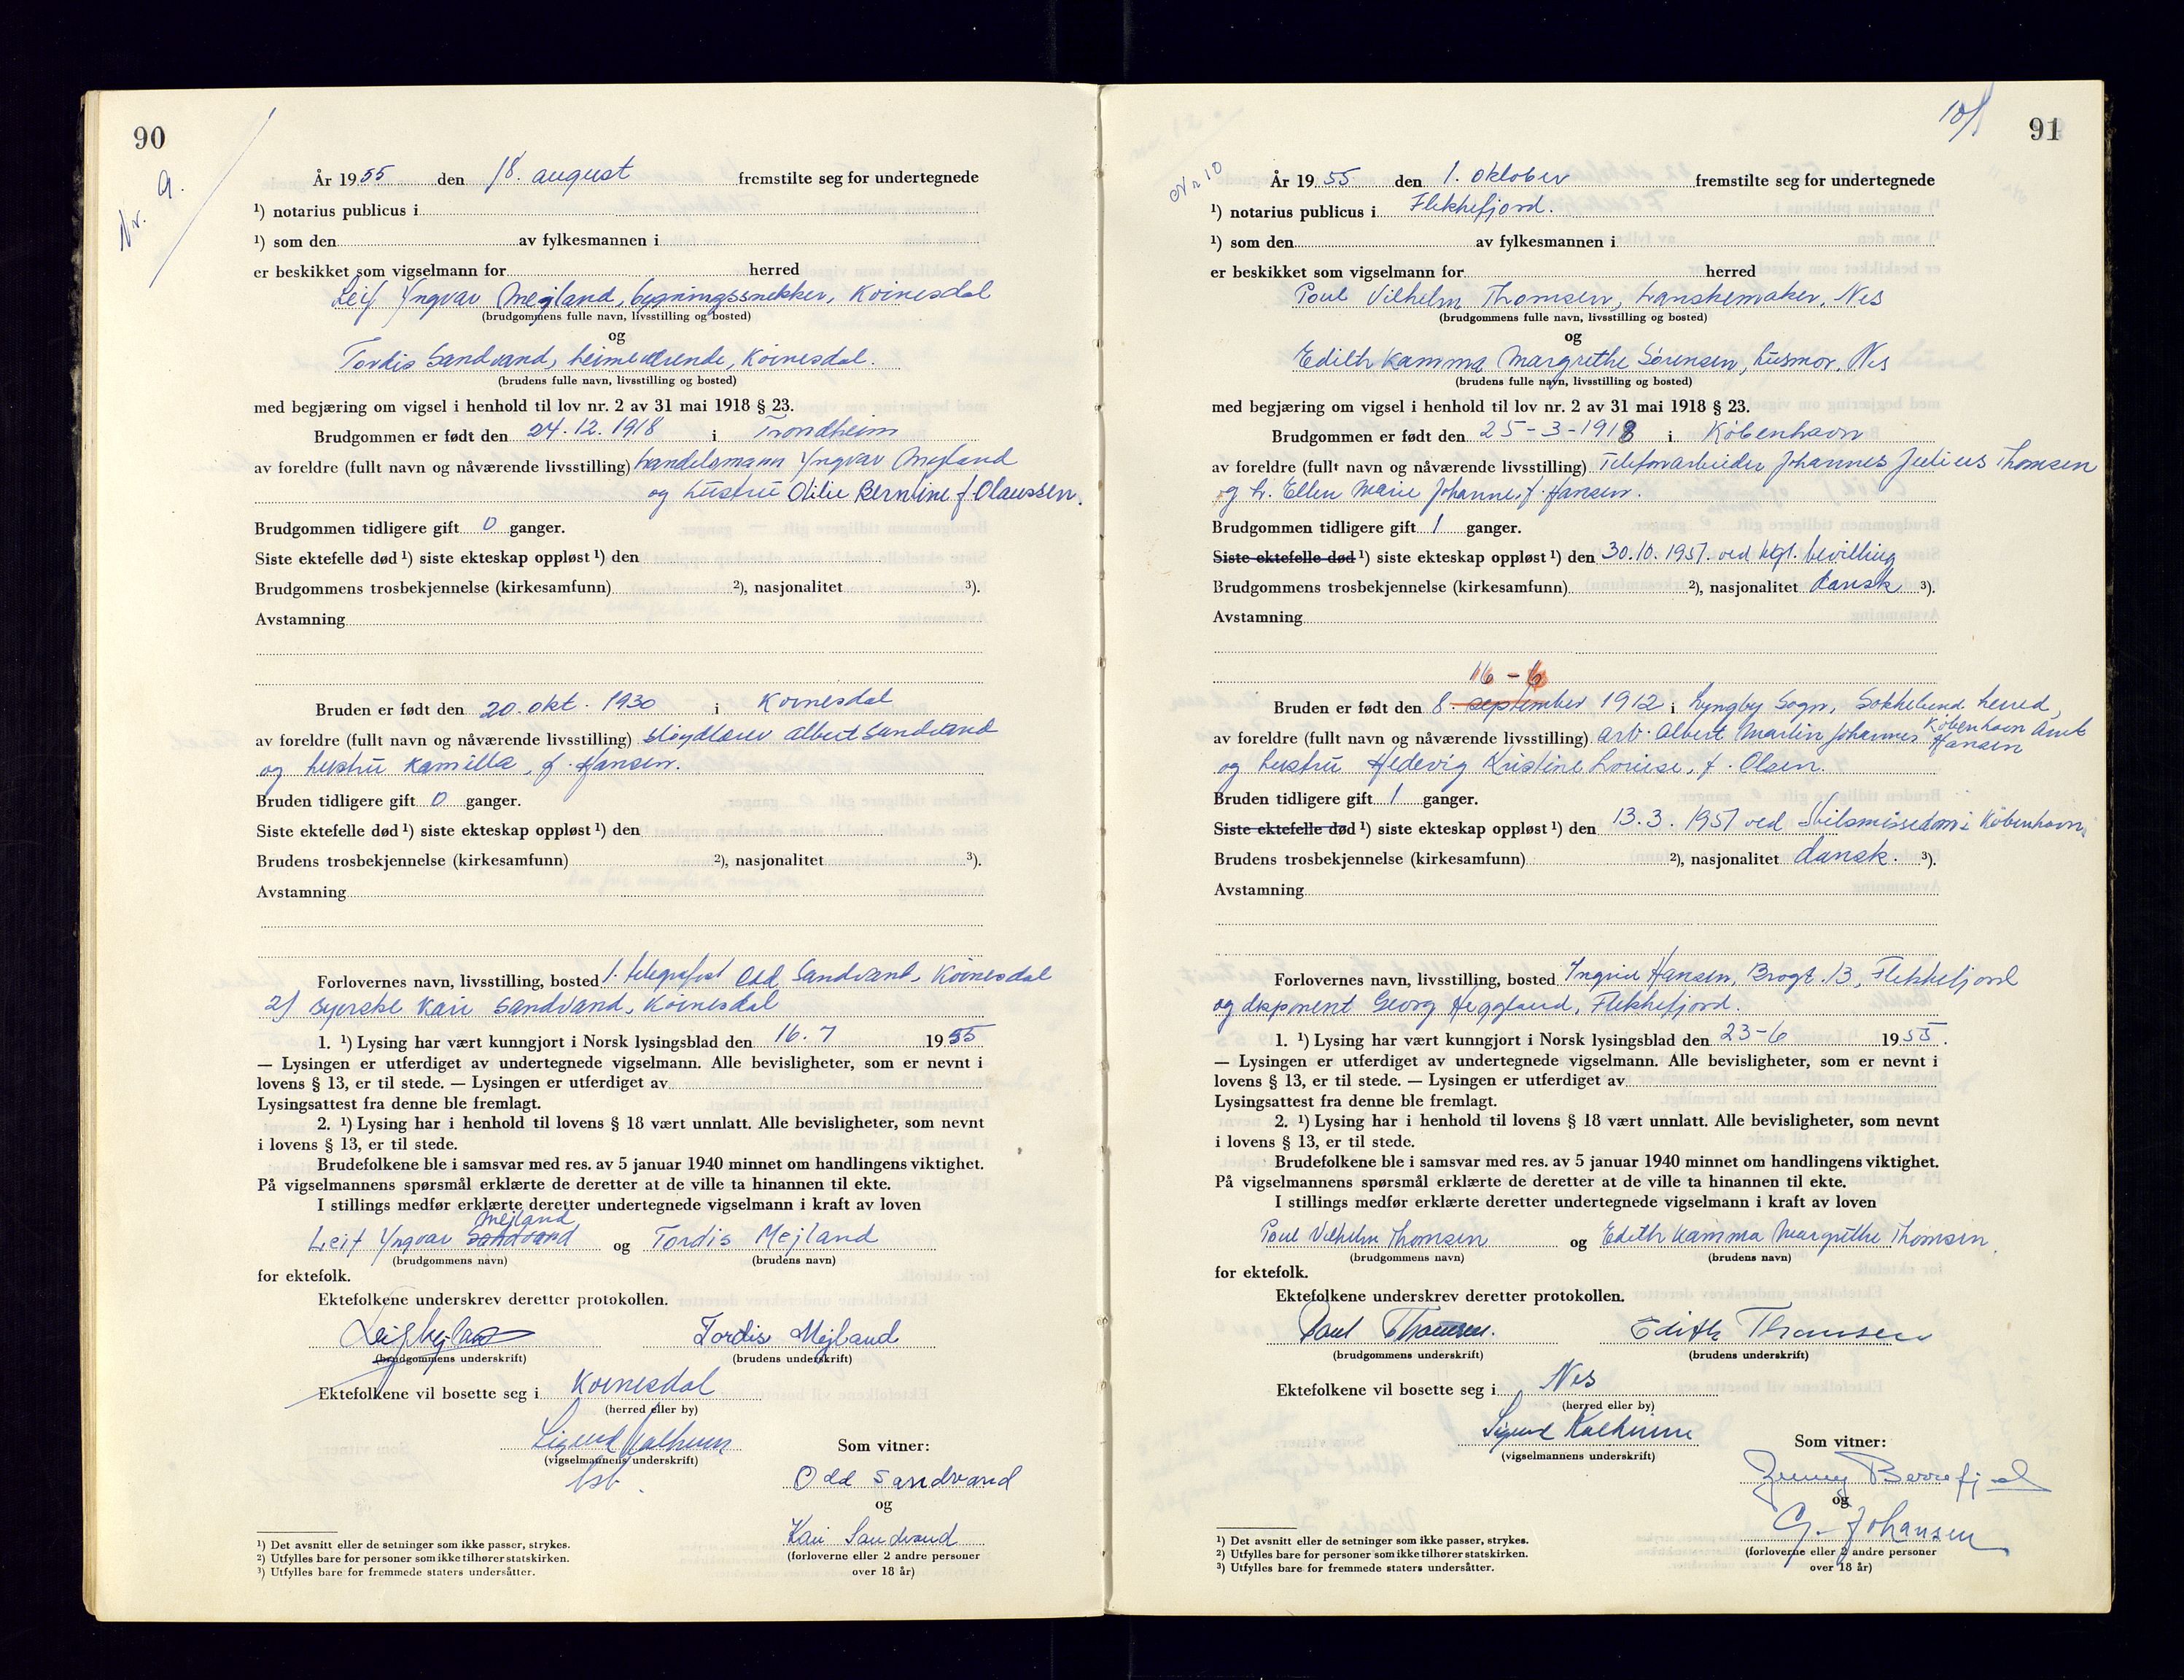 90
Nr. 9.
År 1955 den 18. august fremstilte seg for undertegnede
¹) notarius publicus i
¹) som den av fylkesmannen i
er beskikket som vigselmann for herred
Leif Yngvar Mejland, bygningssnekker, Kvinesdal
(brudgommens fulle navn, livsstilling og bosted)
og
Tordis Sandvand, heimeværende, Kvinesdal.
(brudens fulle navn, livsstilling og bosted)
med begjæring om vigsel i henhold til lov nr. 2 av 31 mai 1918 § 23.
Brudgommen er født den 24.12.1918 i Trondheim
av foreldre (fullt navn og nåværende livsstilling) handelsmann Yngvar Mejland
og hustru Otilie Berntine f Olaussen.
Brudgommen tidligere gift 0 ganger.
Siste ektefelle død ¹) siste ekteskap oppløst ¹) den
Brudgommens trosbekjennelse (kirkesamfunn) ²), nasjonalitet ³).
Avstamning
Bruden er født den 20. okt. 1930 i Kvinesdal
av foreldre (fullt navn og nåværende livsstilling) sløydlærer Albert Sandvand
og hustru Kamilla, f. Hansen.
Bruden tidligere gift 0 ganger.
Siste ektefelle død ¹) siste ekteskap oppløst ¹) den
Brudens trosbekjennelse (kirkesamfunn) ²), nasjonalitet ³).
Avstamning
Forlovernes navn, livsstilling, bosted 1. telegrafist Odd Sandvand, Kvinesdal
2) syerske Kari Sandvand, Kvinesdal
1. ¹) Lysing har vært kunngjort i Norsk lysingsblad den 16. 7 1955
— Lysingen er utferdiget av undertegnede vigselmann. Alle bevisligheter, som er nevnt i
lovens § 13, er til stede. — Lysingen er utferdiget av
Lysingsattest fra denne ble fremlagt.
2. ¹) Lysing har i henhold til lovens § 18 vært unnlatt. Alle bevisligheter, som nevnt
i lovens § 13, er til stede.
Brudefolkene ble i samsvar med res. av 5 januar 1940 minnet om handlingens viktighet.
På vigselmannens spørsmål erklærte de deretter at de ville ta hinannen til ekte.
I stillings medfør erklærte deretter undertegnede vigselmann i kraft av loven
Mejland
Leif Yngvar Sandvand og Tordis Mejland
(brudgommens navn) (brudens navn)
for ektefolk.
Ektefolkene underskrev deretter protokollen.
Leif Mejland Tordis Mejland
(brudgommens underskrift) (brudens underskrift)
Ektefolkene vil bosette seg i Kvinesdal
(herred eller by)
Sigurd Kalhum
(vigselmannens underskrift)
Som vitner:
Odd Sandvand
og
Kari Sandvand
(forloverne eller 2 andre personer
over 18 år)
¹) Det avsnitt eller de setninger som ikke passer, strykes.
²) Utfylles bare for personer som ikke tilhører statskirken.
³) Utfylles bare for fremmede staters undersåtter.
10/
91
Nr 10
År 1955 den 1. oktober fremstilte seg for undertegnede
¹) notarius publicus i Flekkefjord.
¹) som den av fylkesmannen i
er beskikket som vigselmann for herred
Poul Vilhelm Thomsen, hanskemaker, Nes
(brudgommens fulle navn, livsstilling og bosted)
og
Edith Kamma Margrethe Sørensen, husmor, Nes
(brudens fulle navn, livsstilling og bosted)
med begjæring om vigsel i henhold til lov nr. 2 av 31 mai 1918 § 23.
Brudgommen er født den 25-3-1918 i København
av foreldre (fullt navn og nåværende livsstilling) Telefonarbeider Johannes Julius Thomsen
og h. Ellen Marie Johanne, f. Hansen.
Brudgommen tidligere gift 1 ganger.
Siste ektefelle død ¹) siste ekteskap oppløst ¹) den 30.10.1951. ved kgl. bevilling
Brudgommens trosbekjennelse (kirkesamfunn) ²), nasjonalitet dansk ³).
Avstamning
16 - 6
Bruden er født den 8. september 1912 i Lyngby Sogn, Sokkelund herred,
København Amt
av foreldre (fullt navn og nåværende livsstilling) arb. Albert Martin Johannes Hansen
og hustru Hedevig Kristine Louise, f. Olsen.
Bruden tidligere gift 1 ganger.
Siste ektefelle død ¹) siste ekteskap oppløst ¹) den 13.3. 1951 ved Skilsmissedom i København.
Brudens trosbekjennelse (kirkesamfunn) ²), nasjonalitet dansk. ³).
Avstamning
Forlovernes navn, livsstilling, bosted Ingrid Hansen, Brogt. 13, Flekkefjord
og disponent Georg Heggland, Flekkefjord.
1. ¹) Lysing har vært kunngjort i Norsk lysingsblad den 23-6 1955.
— Lysingen er utferdiget av undertegnede vigselmann. Alle bevisligheter, som er nevnt i
lovens § 13, er til stede. — Lysingen er utferdiget av
Lysingsattest fra denne ble fremlagt.
2. ¹) Lysing har i henhold til lovens § 18 vært unnlatt. Alle bevisligheter, som nevnt
i lovens § 13, er til stede.
Brudefolkene ble i samsvar med res. av 5 januar 1940 minnet om handlingens viktighet.
På vigselmannens spørsmål erklærte de deretter at de ville ta hinannen til ekte.
I stillings medfør erklærte deretter undertegnede vigselmann i kraft av loven
Poul Vilhelm Thomsen og Edith Kamma Margrethe Thomsen.
(brudgommens navn) (brudens navn)
for ektefolk.
Ektefolkene underskrev deretter protokollen.
Poul Thomsen. Edith Thomsen
(brudgommens underskrift) (brudens underskrift)
Ektefolkene vil bosette seg i Nes
(herred eller by)
Sigurd Kalhum
(vigselmannens underskrift)
Som vitner:
Berrefjord
og
G. Johansen
(forloverne eller 2 andre personer
over 18 år)
¹) Det avsnitt eller de setninger som ikke passer, strykes.
²) Utfylles bare for personer som ikke tilhører statskirken.
³) Utfylles bare for fremmede staters undersåtter.